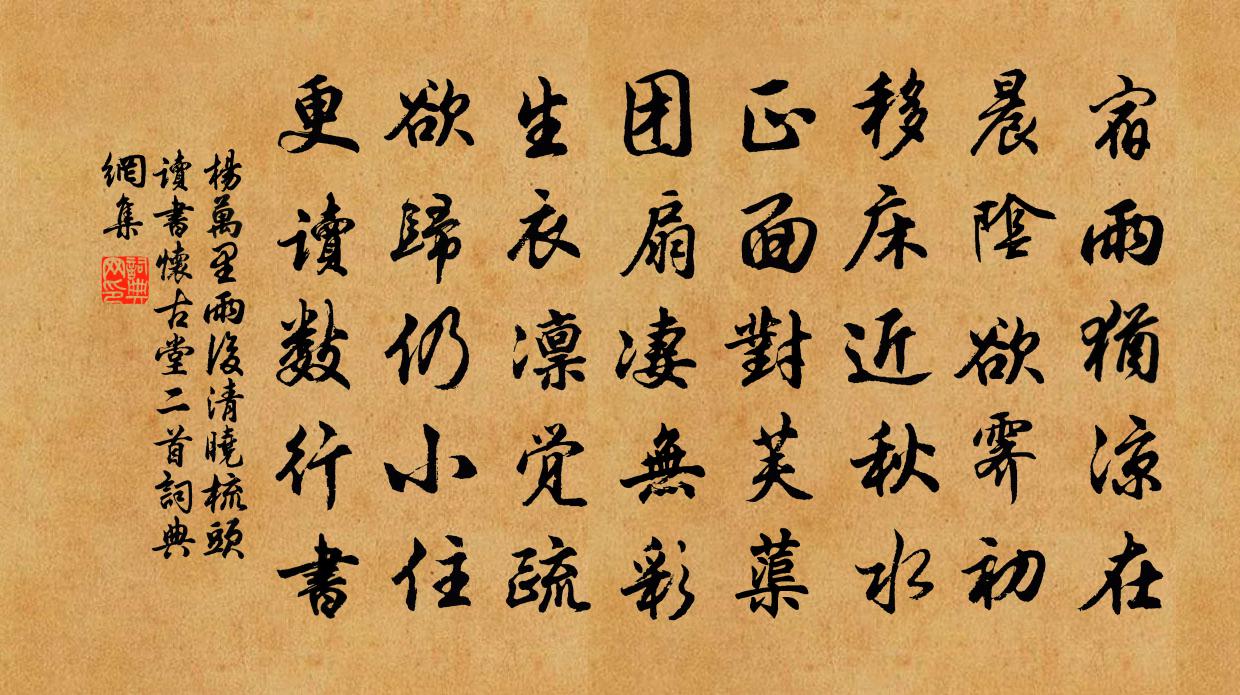 宿雨猶涼在
晨陰欲霽初
移床近秋水
正面對芙蕖
团扇凄無彩
生衣凛覚疏
欲歸仍小住
更讀數行書
楊萬里雨後清曉梳頭
讀書懷古堂二首詞典
網集
詞典
网印